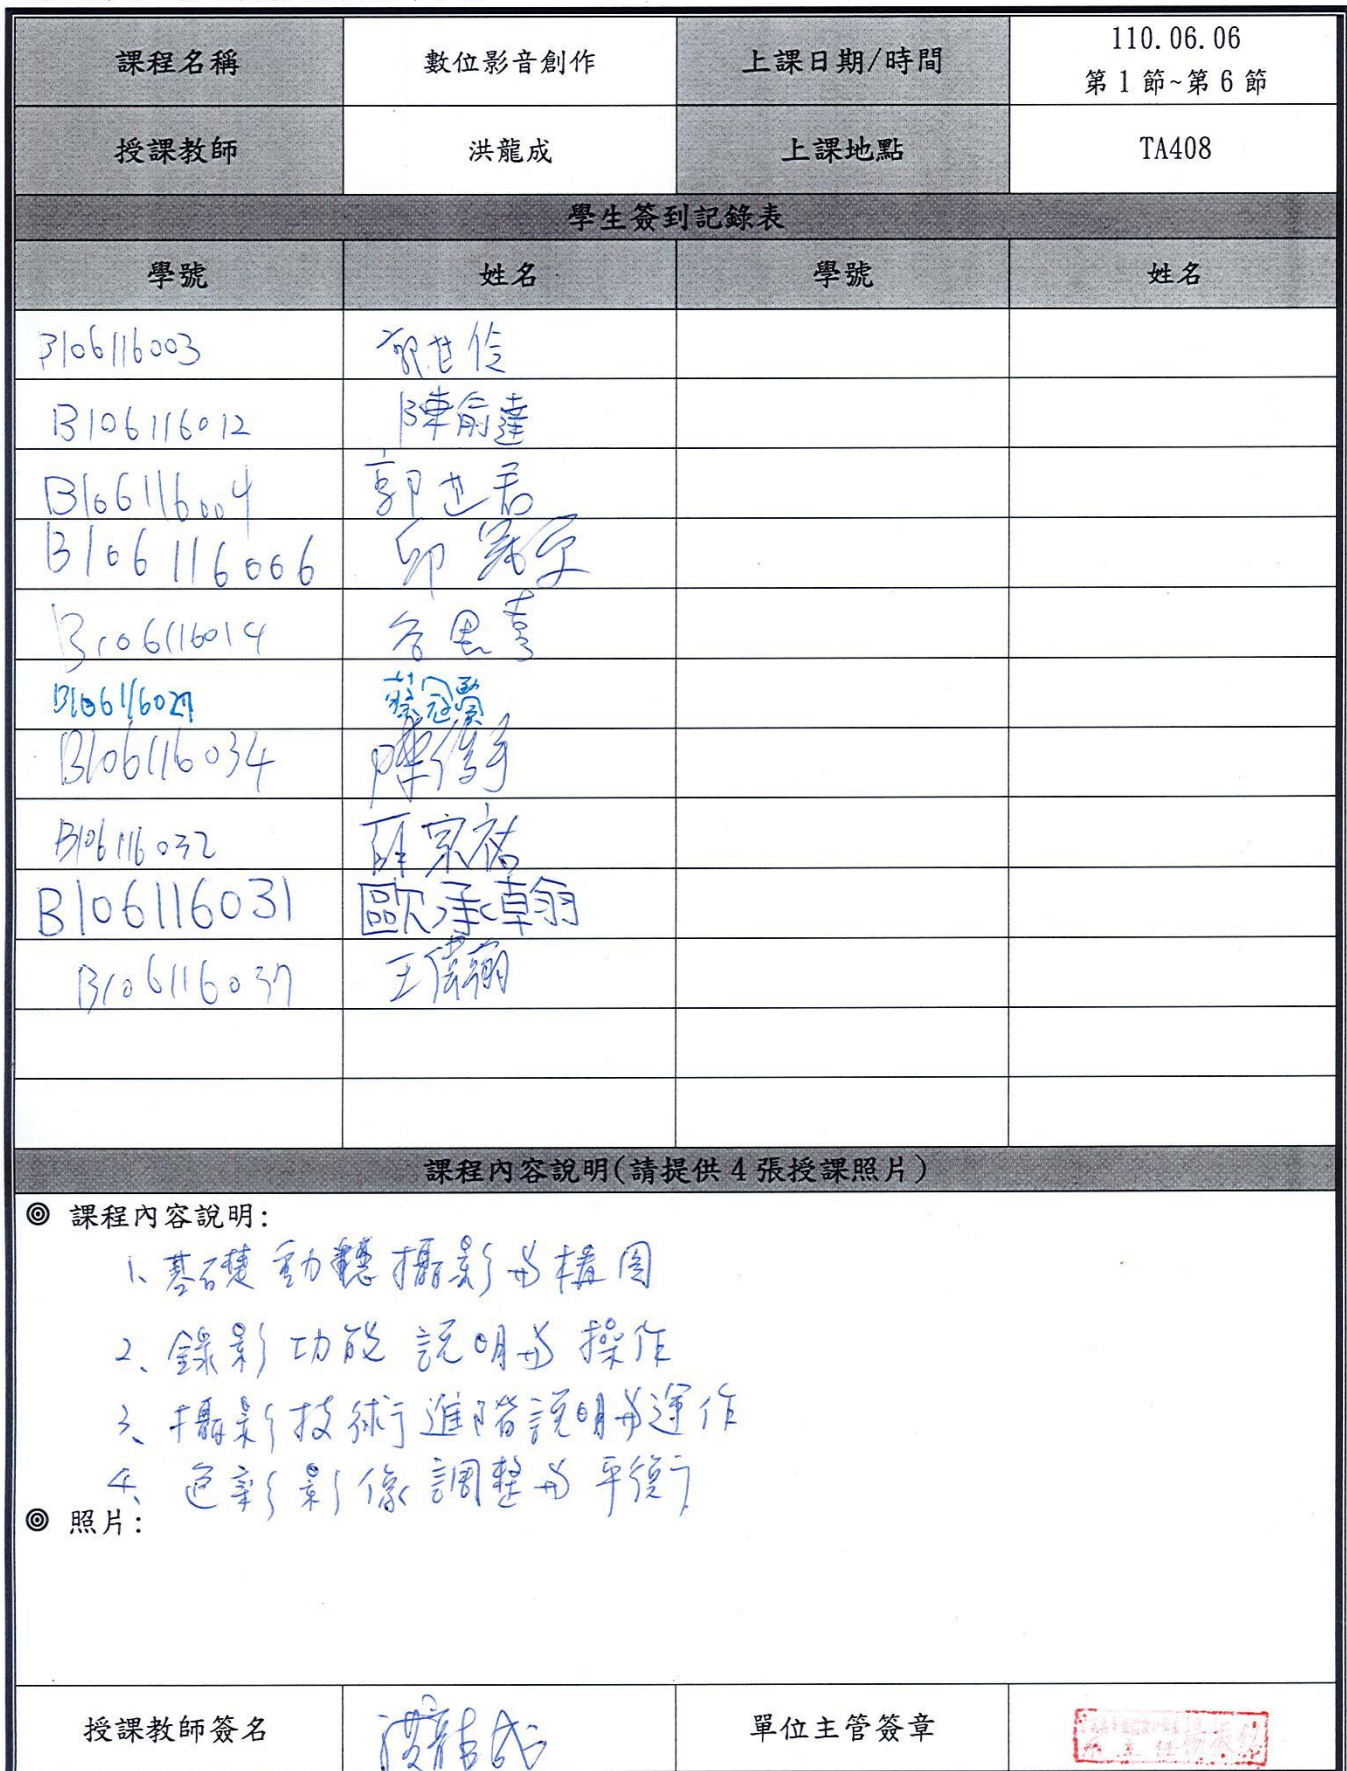 課程名稱 數位影音創作 上課日期/時間 110.06.06
第 1 節~第 6 節
授課教師 洪龍成 上課地點 TA408
學生簽到記錄表
學號 姓名 學號 姓名
B106116003 郭世伶
B106116012 陳俞達
B106116004 郭世君
B106116006 邱
B106116014 谷思熹
B106116027 蔡冠
B106116034 陳
B106116032 薛宗祐
B106116031 歐承翰
B106116037 王偉
課程內容說明(請提供 4 張授課照片)
◎ 課程內容說明:
1、基礎動態攝影與構圖
2、錄影功能說明與操作
3、攝影技術進階說明與運作
4、色彩影像調整與平衡
◎ 照片:
授課教師簽名 洪龍成 單位主管簽章
主任